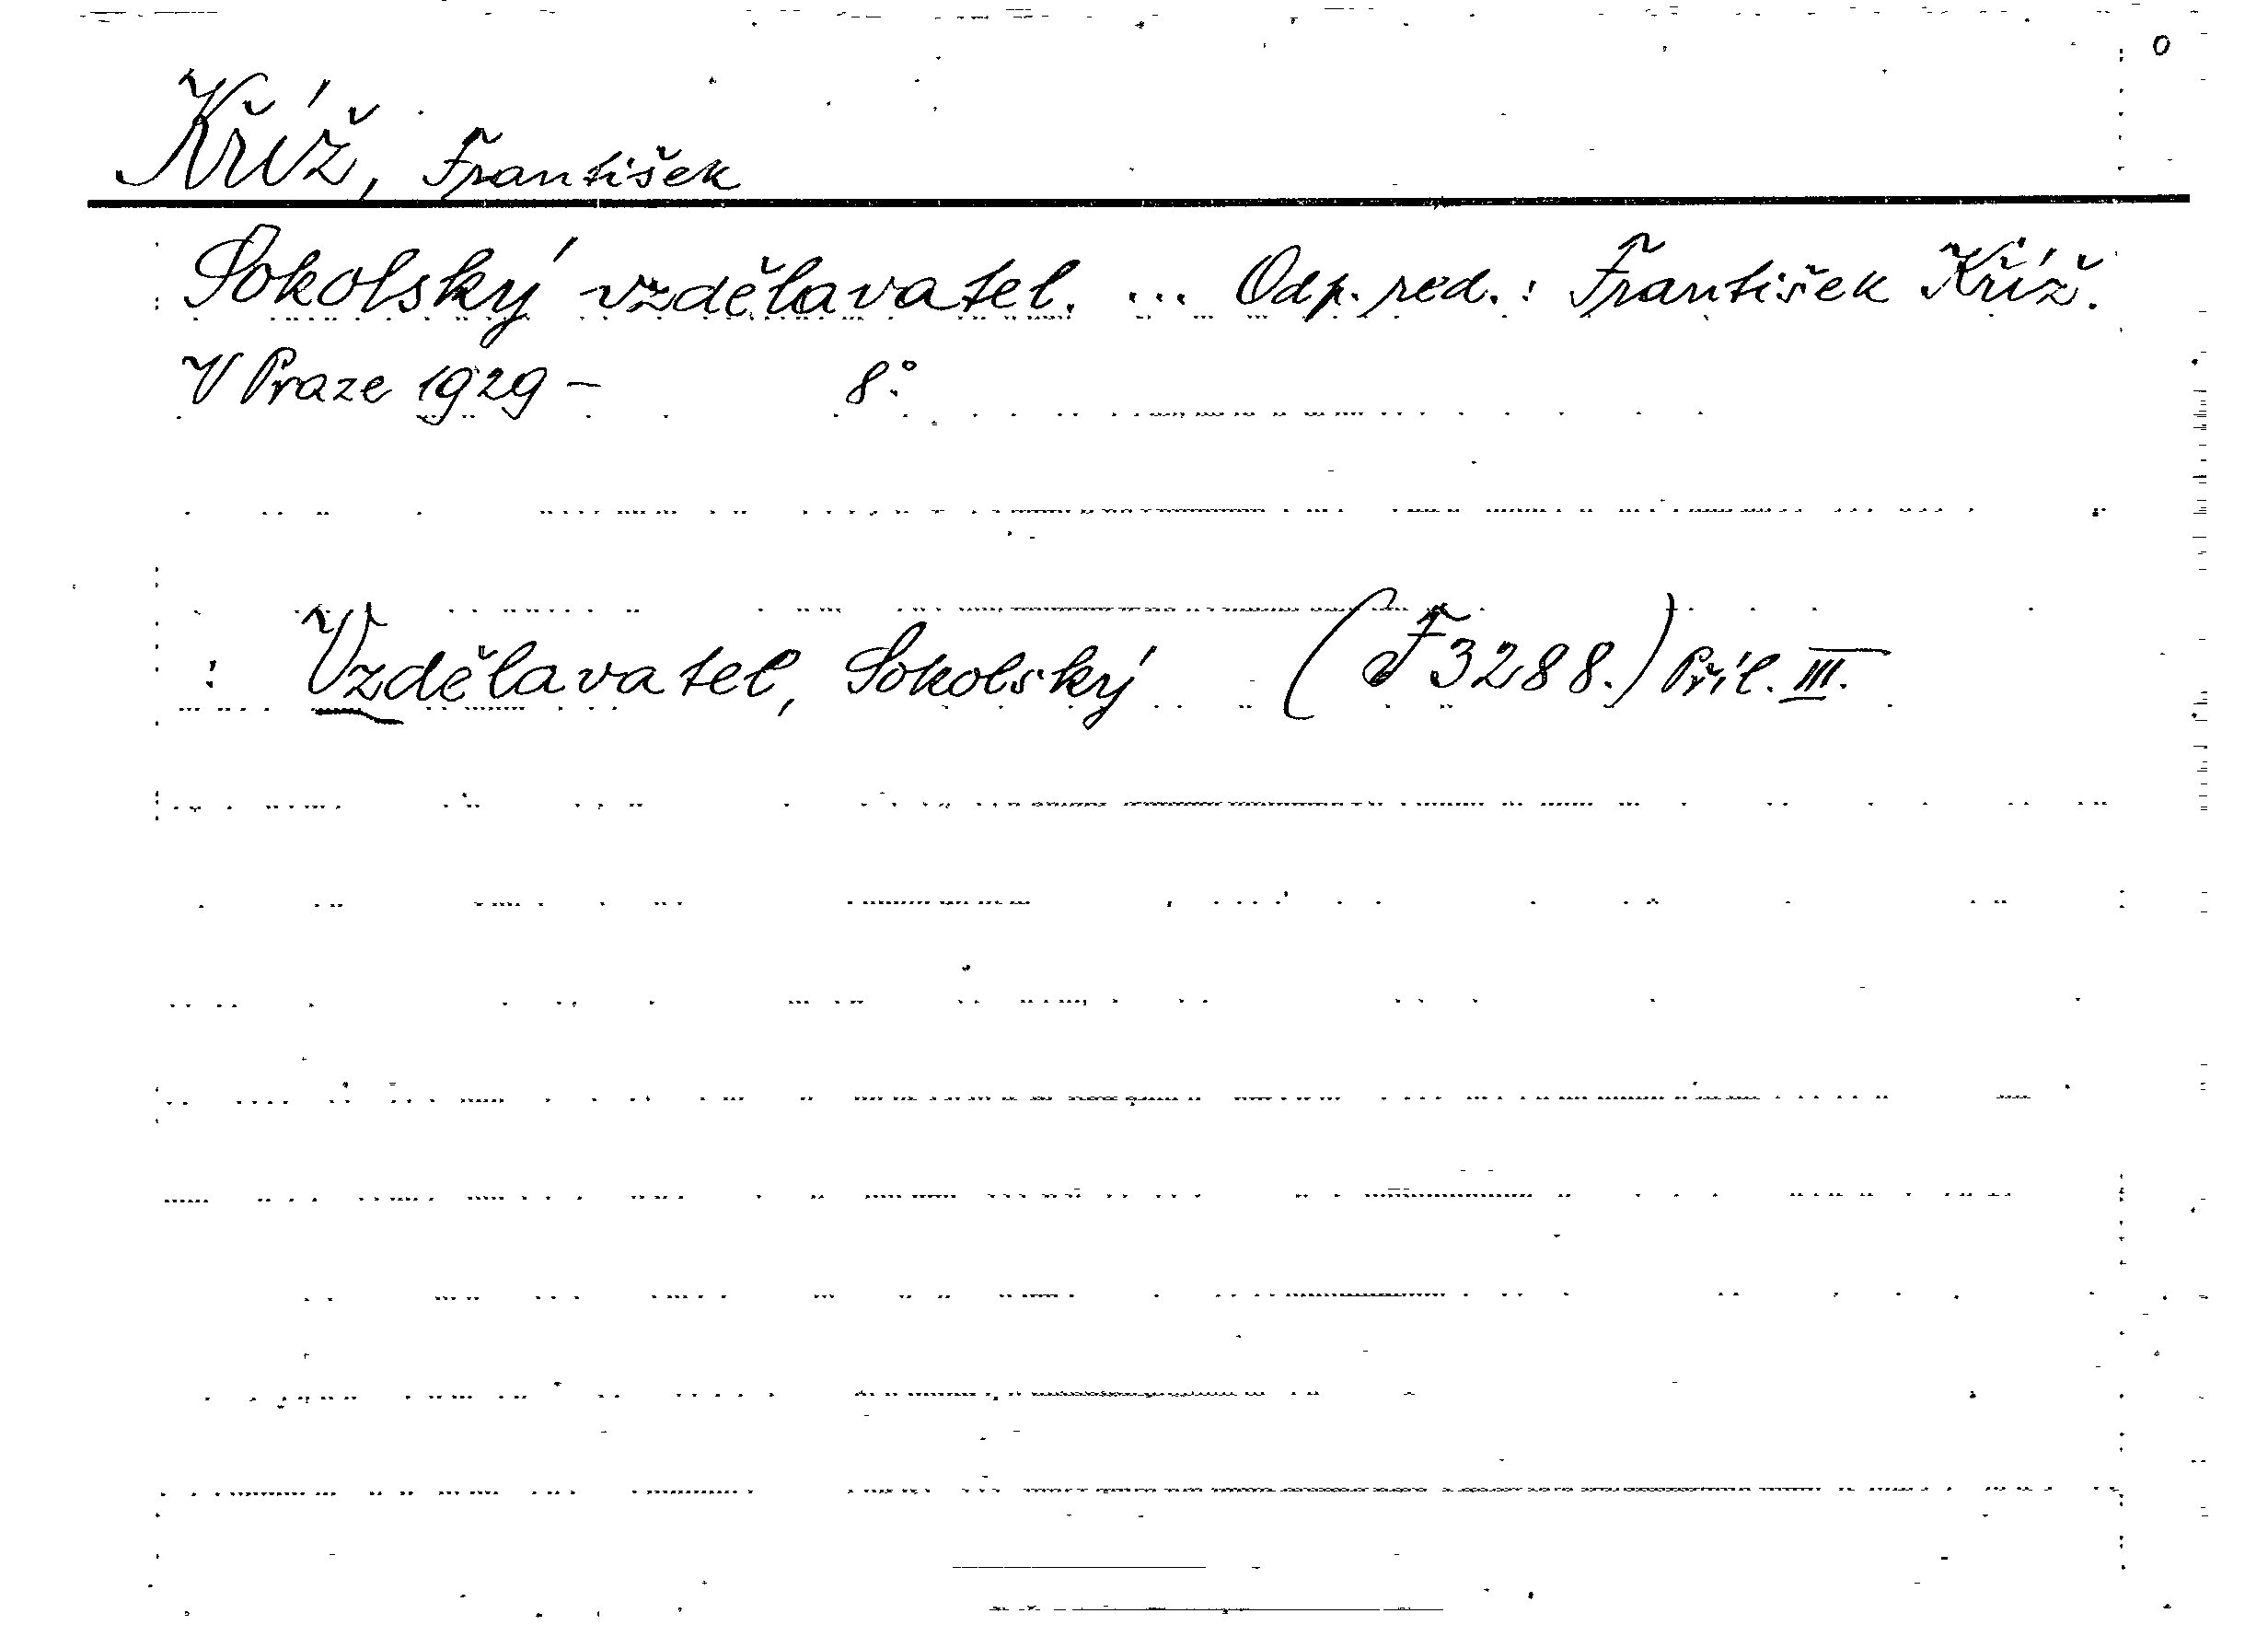 Kříž, František
Sokolský vzdělavatel. ... Odp. red.: František Kříž.
V Praze 1929 – 8°.
: Vzdělavatel, Sokolský (F 3288.) Příl. III.